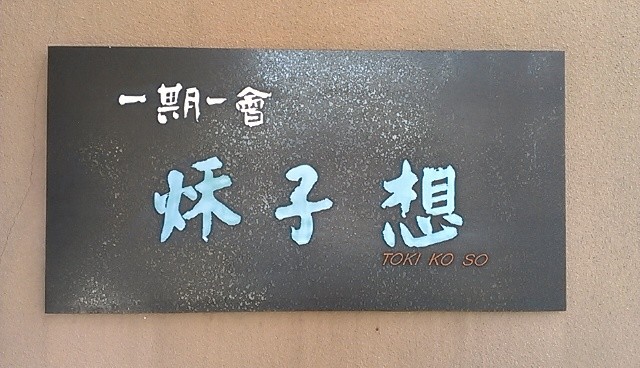 一期一會
秌子想
TOKI KO SO